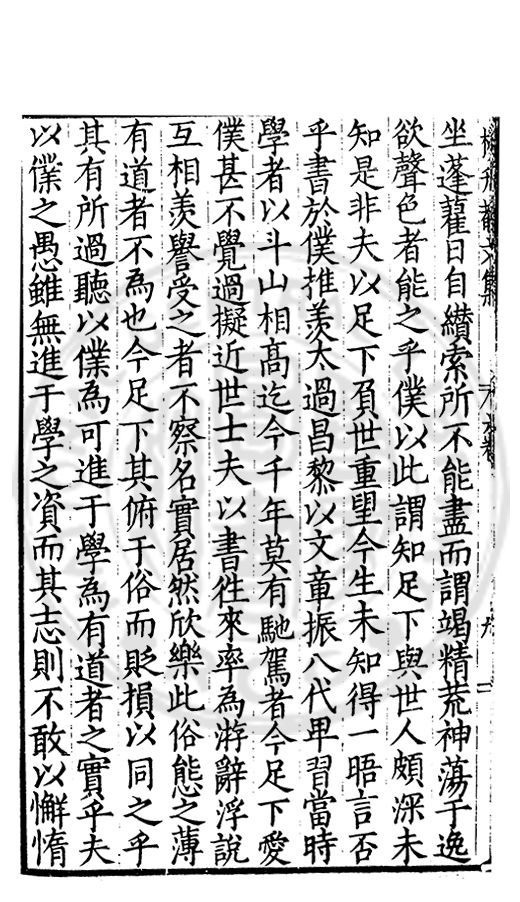 坐蓬藋日自纉索所不能盡而謂竭精荒神蕩于逸
欲聲色者能之乎僕以此謂知足下與世人頗深未
知是非夫以足下負世重望今生未知得一晤言否
乎書於僕推羨太過昌黎以文章振八代卑習當時
學者以斗山相高迄今千年莫有馳駕者今足下愛
僕甚不覺過擬近世士夫以書徃來率為游辭浮說
互相羨譽受之者不察名實居然欣樂此俗態之薄
有道者不為也今足下其俯于俗而貶損以同之乎
其有所過聽以僕為可進于學為有道者之實乎夫
以僕之愚雖無進于學之資而其志則不敢以懈惰